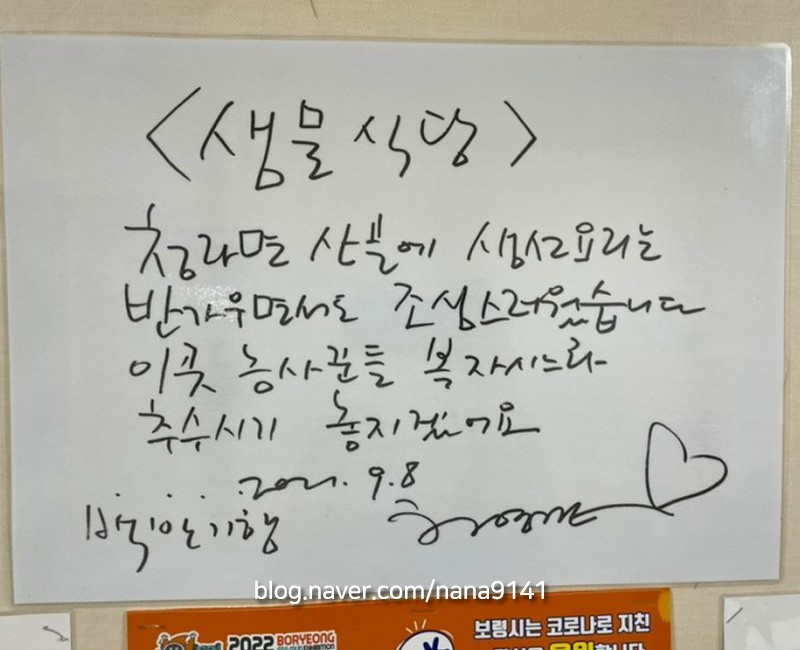 <샘물 식당>
청라면 산블에 생선요리는
반가우면서도 조심스러웠습니다
이곳 농사꾼들 복 자시느라
추수시기 놓치겠어요
2021. 9.8
백반기행
blog.naver.com/nana9141
2022 BORYEONG
보령시는 코로나로 지친